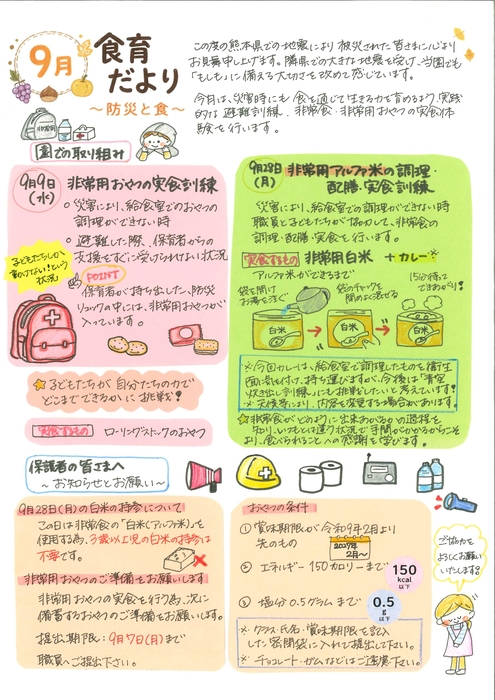 9月
食育
だより
～防災と食～
この度の熊本県での地震により被災された皆さまに心より
お見舞申し上げます。隣県での大きな地震を受け、当園でも
「もしも」に備える大切さを改めて感じています。
今月は、災害時にも食を通じて生きる力を育めるよう、実践
的な避難訓練、非常食・非常用おやつの実食体
験を行います。
園での取り組み
9月9日
(水)
非常用おやつの実食訓練
○災害により、給食室でのおやつの
調理ができない時
○避難した際、保育者からの
支援をすぐに受けられない状況
子どもたちしか
動けない!という
状況
POINT
保育者が持ち出した、防災
リュックの中には、非常用おやつが
入っています。
☆子どもたちが自分たちの力で
どこまでできるかに挑戦!
実食するもの ローリングストックのおやつ
9月28日
(月)
非常用アルファ米の調理・
配膳・実食訓練
災害により、給食室での調理ができない時
職員と子どもたちが協力して、非常食の
調理・配膳・実食を行います。
実食するもの 非常用白米 + カレー
アルファ米ができるまで
袋を開け
お湯を注ぐ
袋のチャックを
閉めよく混ぜる
15分待って
できあがり!
白米
白米
白米
※今回カレーは、給食室で調理したものを衛生
面に気を付け、持ち運びますが、今後は「青空
炊き出し訓練」にも挑戦したいと考えています!
※天候等により、内容を変更する場合があります。
☆非常食がどのように出来あがるかの過程を
知り、いつもとは違う状況で手間がかかるからこそ
より、食べられることへの感謝を学びます。
保護者の皆さまへ
～お知らせとお願い～
9月28日(月)の白米の持参について
この日は非常食の「白米(アルファ米)」を
使用する為、3歳以上児の白米の持参は
不要です。
非常用おやつのご準備をお願いします
非常用おやつの実食を行う為、次に
備蓄するおやつのご準備をお願いします。
提出期限:9月7日(月)まで
職員へご提出下さい。
おやつの条件
① 賞味期限が令和9年2月より
先のもの
2027年
2月～
② エネルギー150カロリーまで
150
kcal
以下
③ 塩分0.5グラムまで
0.5
g
以下
※クラス・氏名・賞味期限を記入
した密閉袋に入れて提出して下さい。
※チョコレート・ガムなどはご遠慮下さい。
ご協力を
よろしくお願い
いたします。